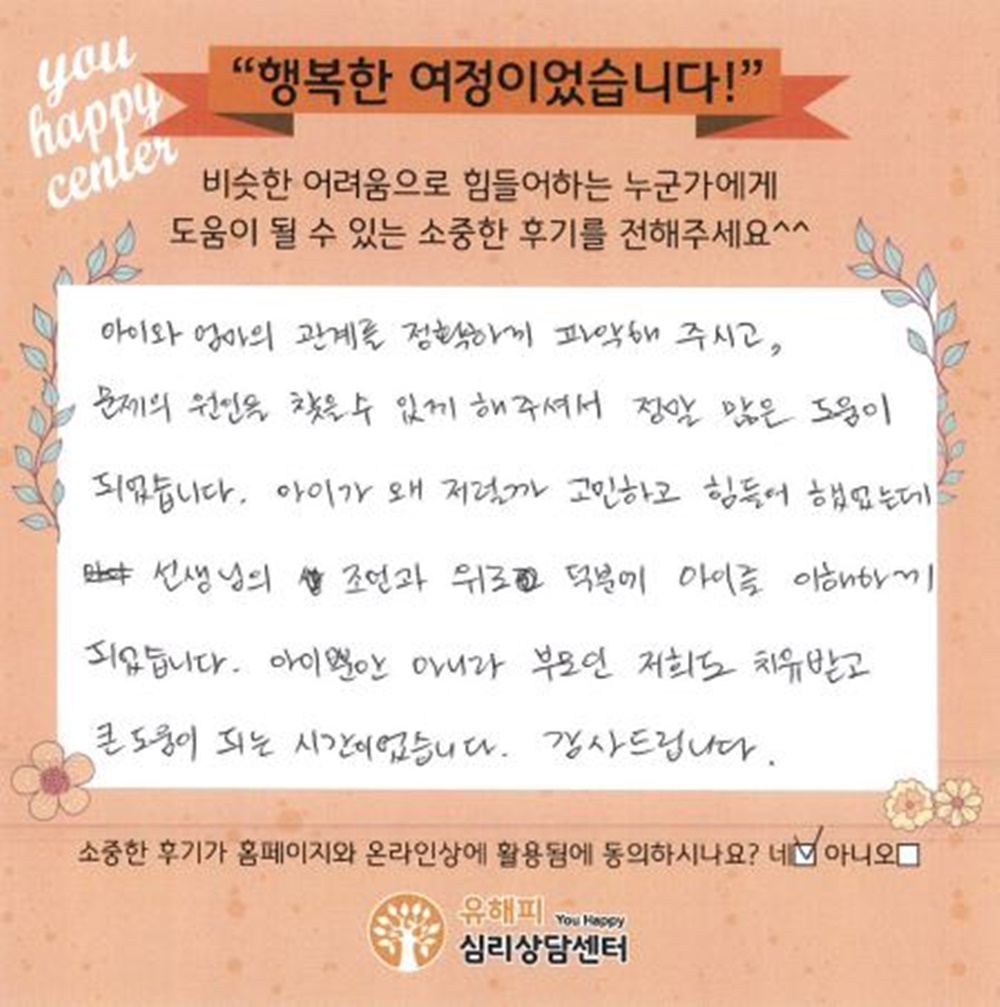 you
happy
center
“행복한 여정이었습니다!”
비슷한 어려움으로 힘들어하는 누군가에게
도움이 될 수 있는 소중한 후기를 전해주세요^^
아이와 엄마의 관계를 정확하게 파악해 주시고,
문제의 원인을 찾을수 있게 해주셔서 정말 많은 도움이
되었습니다. 아이가 왜 저럴까 고민하고 힘들어 했었는데
선생님의 조언과 위로 덕분에 아이를 이해하게
되었습니다. 아이뿐만 아니라 부모인 저희도 치유받고
큰 도움이 되는 시간이었습니다. 감사드립니다.
소중한 후기가 홈페이지와 온라인상에 활용됨에 동의하시나요? 네☑ 아니오☐
유해피 You Happy
심리상담센터